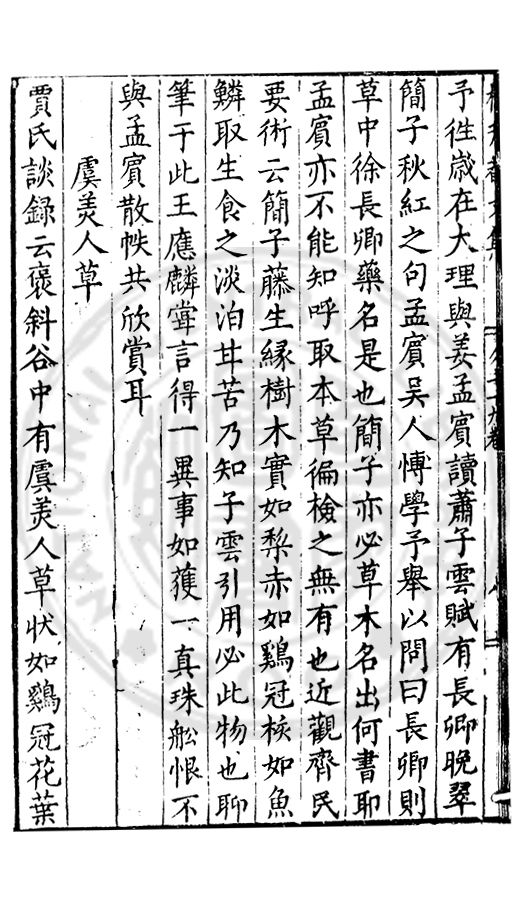 予徃歲在大理與姜孟賓讀蕭子雲賦有長卿晚翠
簡子秋紅之句孟賓吳人愽學予舉以問曰長卿則
草中徐長卿藥名是也簡子亦必草木名出何書耶
孟賓亦不能知呼取本草徧檢之無有也近觀齊民
要術云簡子藤生緣樹木實如梨赤如鷄冠核如魚
鱗取生食之淡泊甘苦乃知子雲引用必此物也聊
筆于此王應麟甞言得一異事如獲一真珠舩恨不
與孟賓散帙共欣賞耳
虞美人草
賈氏談録云褒斜谷中有虞美人草狀如鷄冠花葉